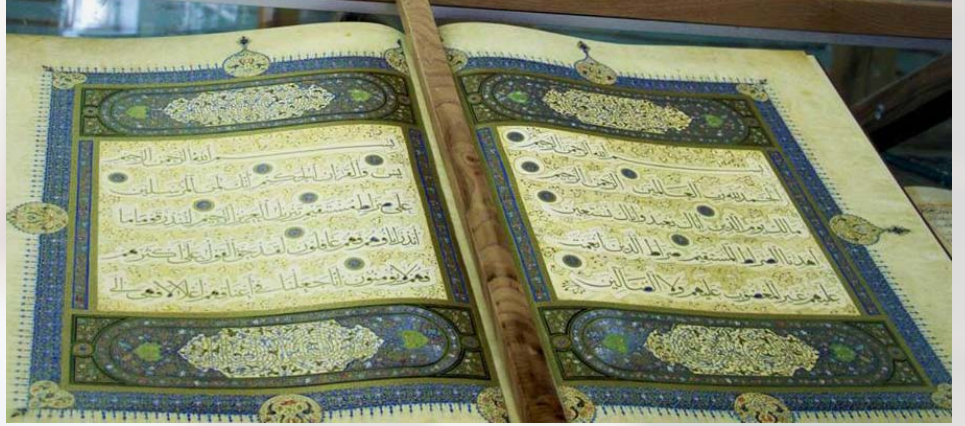 بسم الله الرحمن الرحيم
الحمد لله رب العالمين الرحمن الرحيم
مالك يوم الدين اياك نعبد واياك نستعين
اهدنا الصراط المستقيم صراط الذين انعمت
عليهم غير المغضوب عليهم ولا الضالين
بسم الله الرحمن الرحيم
يس والقران الحكيم انك لمن المرسلين
على صراط مستقيم تنزيل العزيز الرحيم لتنذر قوما ما
انذر اباؤهم فهم غافلون لقد حق القول على اكثرهم
فهم لا يؤمنون انا جعلنا في اعناقهم اغلالا فهي الى